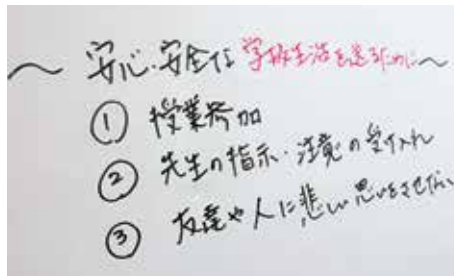 ～安心・安全な学校生活を送るために～
① 授業参加
② 先生の指示・注意の受け入れ
③ 友達や人に悲しい思いをさせない